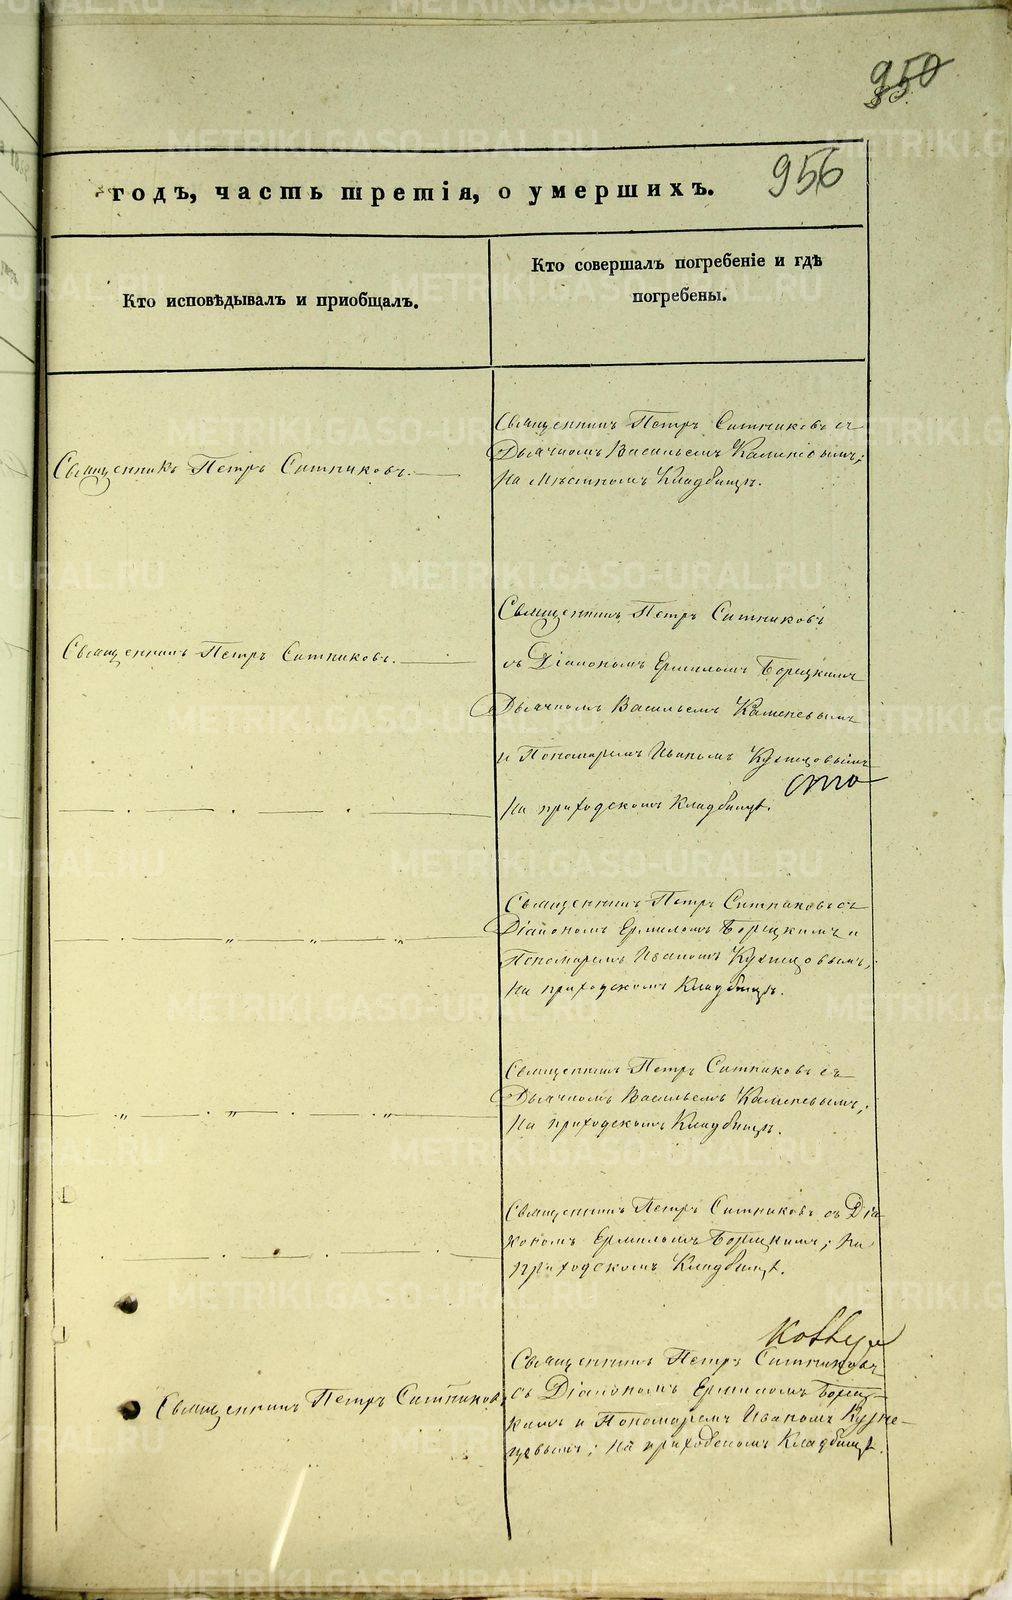 950
годъ, часть третія, о умершихъ.
956
Кто исповѣдывалъ и пріобщалъ.
Кто совершалъ погребеніе и гдѣ
погребены.
Священникъ Петръ Ситниковъ.
Священникъ Петръ Ситниковъ съ
Дьячкомъ Васильемъ
на мѣстномъ Кладбищѣ.
Священникъ Петръ Ситниковъ.
Священникъ Петръ Ситниковъ
съ Діакономъ Ермиломъ Борецкимъ
Дьячкомъ Васильемъ Каменевымъ
и Пономаремъ Иваномъ Кузнецовымъ
на приходскомъ Кладбищѣ.
Священникъ Петръ Ситниковъ съ
Діакономъ Ермиломъ Борецкимъ и
Пономаремъ Иваномъ Кузнецовымъ,
на приходскомъ Кладбищѣ.
Священникъ Петръ Ситниковъ съ
Дьячкомъ Васильемъ Каменевымъ;
на приходскомъ Кладбищѣ.
Священникъ Петръ Ситниковъ съ Діа-
кономъ Ермиломъ Борецкимъ; на
приходскомъ Кладбищѣ.
Священникъ Петръ Ситниковъ
Священникъ Петръ Ситниковъ
съ Діакономъ Ермиломъ Борец-
кимъ и Пономаремъ Иваномъ Кузне-
цовымъ; на приходскомъ Кладбищѣ.
METRIKI.GASO-URAL.RU